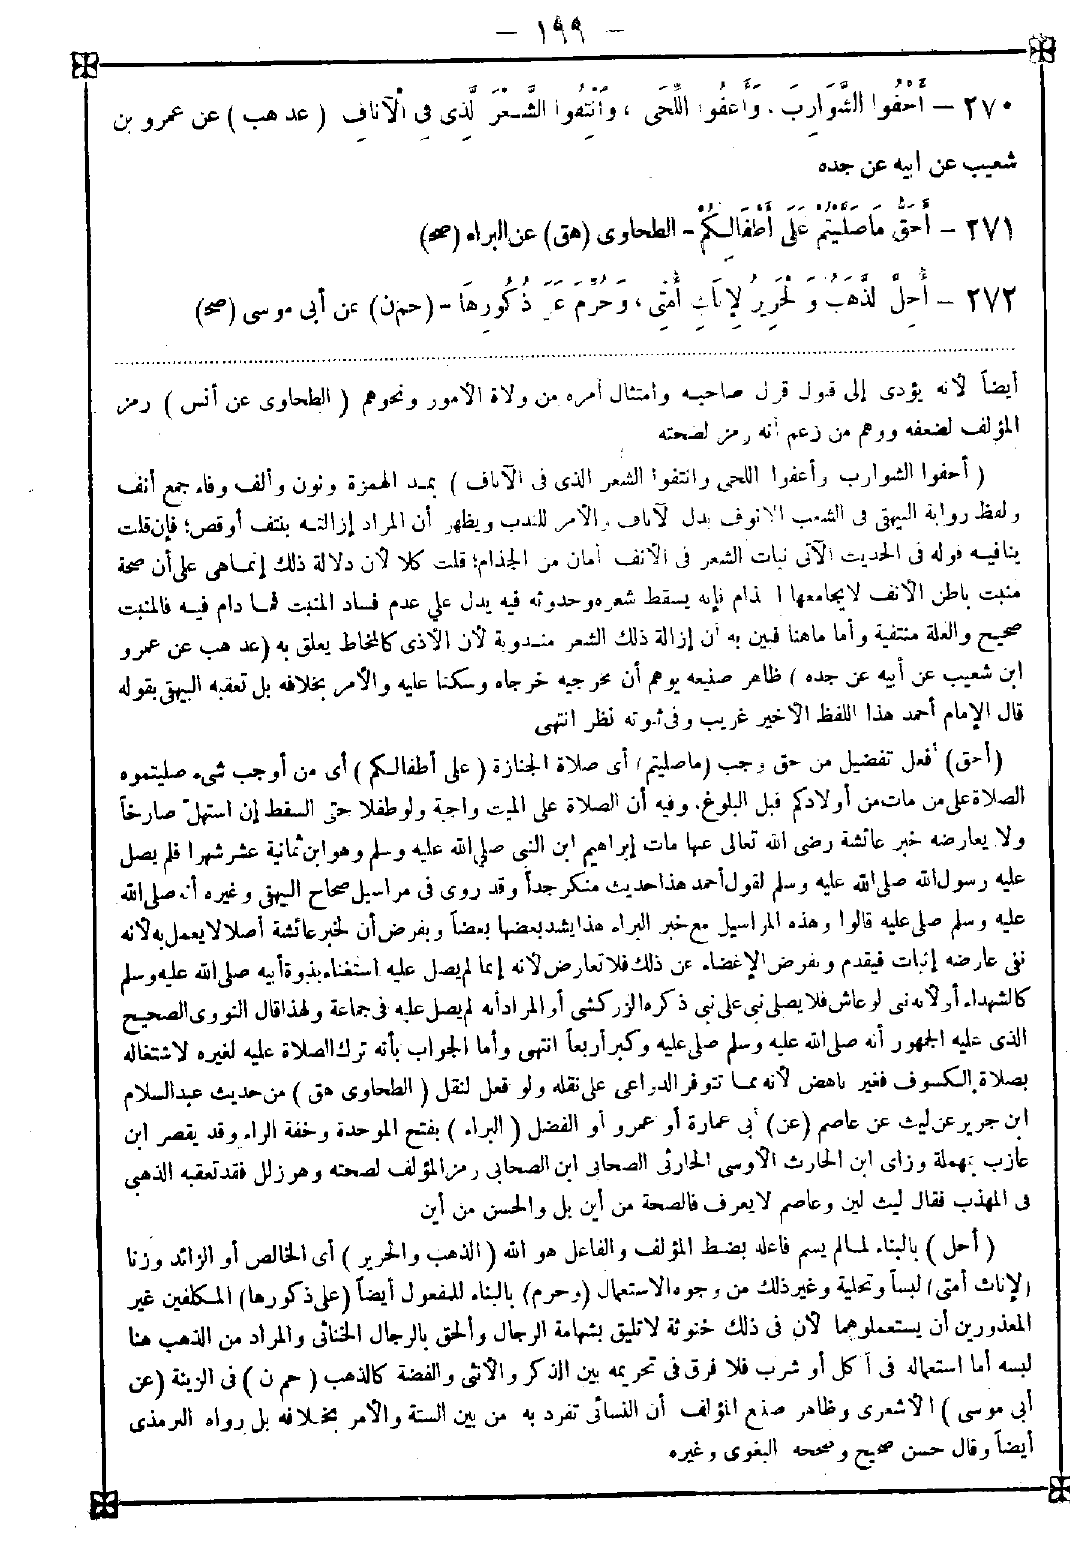 — ١٩٩ —
٢٧٠ — أَحْفُوا الشَّوَارِبَ، وَأَعْفُوا اللِّحَى، وَانْتِفُوا الشَّعْرَ الَّذِى فِى الْآنَافِ (عد هب) عن عمرو بن
شعيب عن أبيه عن جده
٢٧١ — أَحَقُّ مَا صَلَّيْتُمْ عَلَى أَطْفَالِكُمْ - الطحاوى (هق) عن البراء (صح)
٢٧٢ — أُحِلَّ الذَّهَبُ وَالْحَرِيرُ لِإِنَاثِ أُمَّتِى، وَحُرِّمَ عَلَى ذُكُورِهَا - (حم ن) عن أبى موسى (صح)
أيضاً لأنه يؤدى إلى قبول قول صاحبه وامتثال أمره من ولاة الأمور ونحوهم (الطحاوى عن أنس) رمز
المؤلف لضعفه ووهم من زعم أنه رمز لصحته
(أحفوا الشوارب وأعفوا اللحى وانتفوا الشعر الذى فى الآناف) بمد الهمزة ونون وألف وفاء جمع أنف
ولفظ رواية البيهقى فى الشعب الأنوف بدل الآناف والأمر للندب ويظهر أن المراد إزالته بنتف أو قص؛ فإن قلت
ينافيه قوله فى الحديث الآتى نبات الشعر فى الأنف أمان من الجذام؛ قلت كلا لأن دلالة ذلك إنما هى على أن صحة
منبت باطن الأنف لا يجامعها الجذام فإنه يسقط شعره وحدوثه فيه يدل على عدم فساد المنبت فما دام فيه فالمنبت
صحيح والعلة منتفية وأما ما هنا فبين به أن إزالة ذلك الشعر مندوبة لأن الأذى كالمخاط يعلق به (عد هب عن عمرو
ابن شعيب عن أبيه عن جده) ظاهر صنيعه يوهم أن مخرجيه خرجاه وسكتا عليه والأمر بخلافه بل تعقبه البيهقى بقوله
قال الإمام أحمد هذا اللفظ الأخير غريب وفى ثبوته نظر انتهى
(أحق) أفعل تفضيل من حق وجب (ما صليتم) أى صلاة الجنازة (على أطفالكم) أى من أوجب شىء صليتموه
الصلاة على من مات من أولادكم قبل البلوغ. وفيه أن الصلاة على الميت واجبة ولو طفلا حتى السقط إن استهلّ صارخاً
ولا يعارضه خبر عائشة رضى الله تعالى عنها مات إبراهيم ابن النبى صلى الله عليه وسلم وهو ابن ثمانية عشر شهرا فلم يصل
عليه رسول الله صلى الله عليه وسلم لقول أحمد هذا حديث منكر جداً وقد روى فى مراسيل صحاح البيهقى وغيره أنه صلى الله
عليه وسلم صلى عليه قالوا وهذه المراسيل مع خبر البراء هذا يشد بعضها بعضاً وبفرض أن لخبر عائشة أصلا لا يعمل به لأنه
نفى عارضه إثبات فيقدم وبفرض الإغضاء عن ذلك فلا تعارض لأنه إنما لم يصل عليه استغناء بنبوة أبيه صلى الله عليه وسلم
كالشهداء أو لأنه نبى لو عاش فلا يصلى نبى على نبى ذكره الزركشى أو المراد أنه لم يصل عليه فى جماعة ولهذا قال النووى الصحيح
الذى عليه الجمهور أنه صلى الله عليه وسلم صلى عليه وكبر أربعاً انتهى وأما الجواب بأنه ترك الصلاة عليه لغيره لاشتغاله
بصلاة الكسوف فغير ناهض لأنه مما تتوفر الدواعى على نقله ولو فعل لنقل (الطحاوى هق) من حديث عبد السلام
ابن جرير عن ليث عن عاصم (عن) أبى عمارة أو عمرو أو الفضل (البراء) بفتح الموحدة وخفة الراء وقد يقصر ابن
عازب بمهملة وزاى ابن الحارث الأوسى الحارثى الصحابى ابن الصحابى رمز المؤلف لصحته وهو زلل فقد تعقبه الذهبى
فى المهذب فقال ليث لين وعاصم لا يعرف فالصحة من أين بل والحسن من أين
(أحل) بالبناء لما لم يسم فاعله بضبط المؤلف والفاعل هو الله (الذهب والحرير) أى الخالص أو الزائد وزنا
(لإناث أمتى) لبساً وتحلية وغير ذلك من وجوه الاستعمال (وحرم) بالبناء للمفعول أيضاً (على ذكورها) المكلفين غير
المعذورين أن يستعملوهما لأن فى ذلك خنوثة لا تليق بشهامة الرجال وألحق بالرجال الخناثى والمراد من الذهب هنا
لبسه أما استعماله فى أكل أو شرب فلا فرق فى تحريمه بين الذكر والأنثى والفضة كالذهب (حم ن) فى الزينة (عن
أبى موسى) الأشعرى وظاهر صنع المؤلف أن النسائى تفرد به من بين الستة والأمر بخلافه بل رواه الترمذى
أيضاً وقال حسن صحيح وصححه البغوى وغيره